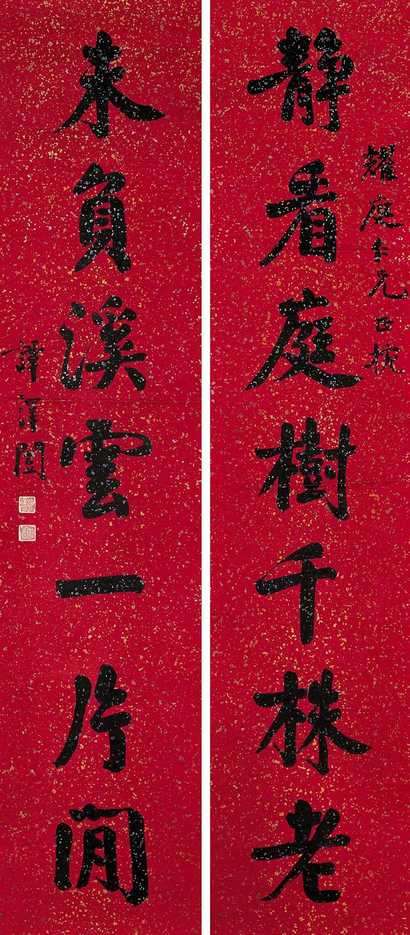 耀庭仁兄正执
静看庭樹千株老
未負溪雲一片閒
譚澤闓